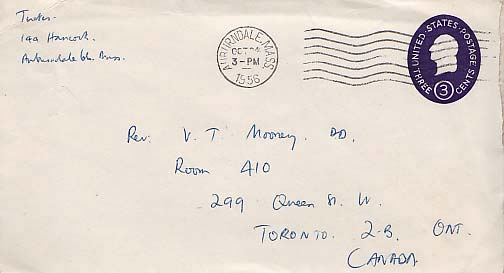 149 Hancock.
Auburndale
Mass.
AUBURNDALE, MASS.
OCT
3-PM
1956
UNITED·STATES·POSTAGE
THREE 3 CENTS
Rev. V. T. Mooney, DD.
Room 410
299 Queen St. W.
TORONTO. 2-B. ONT.
CANADA.